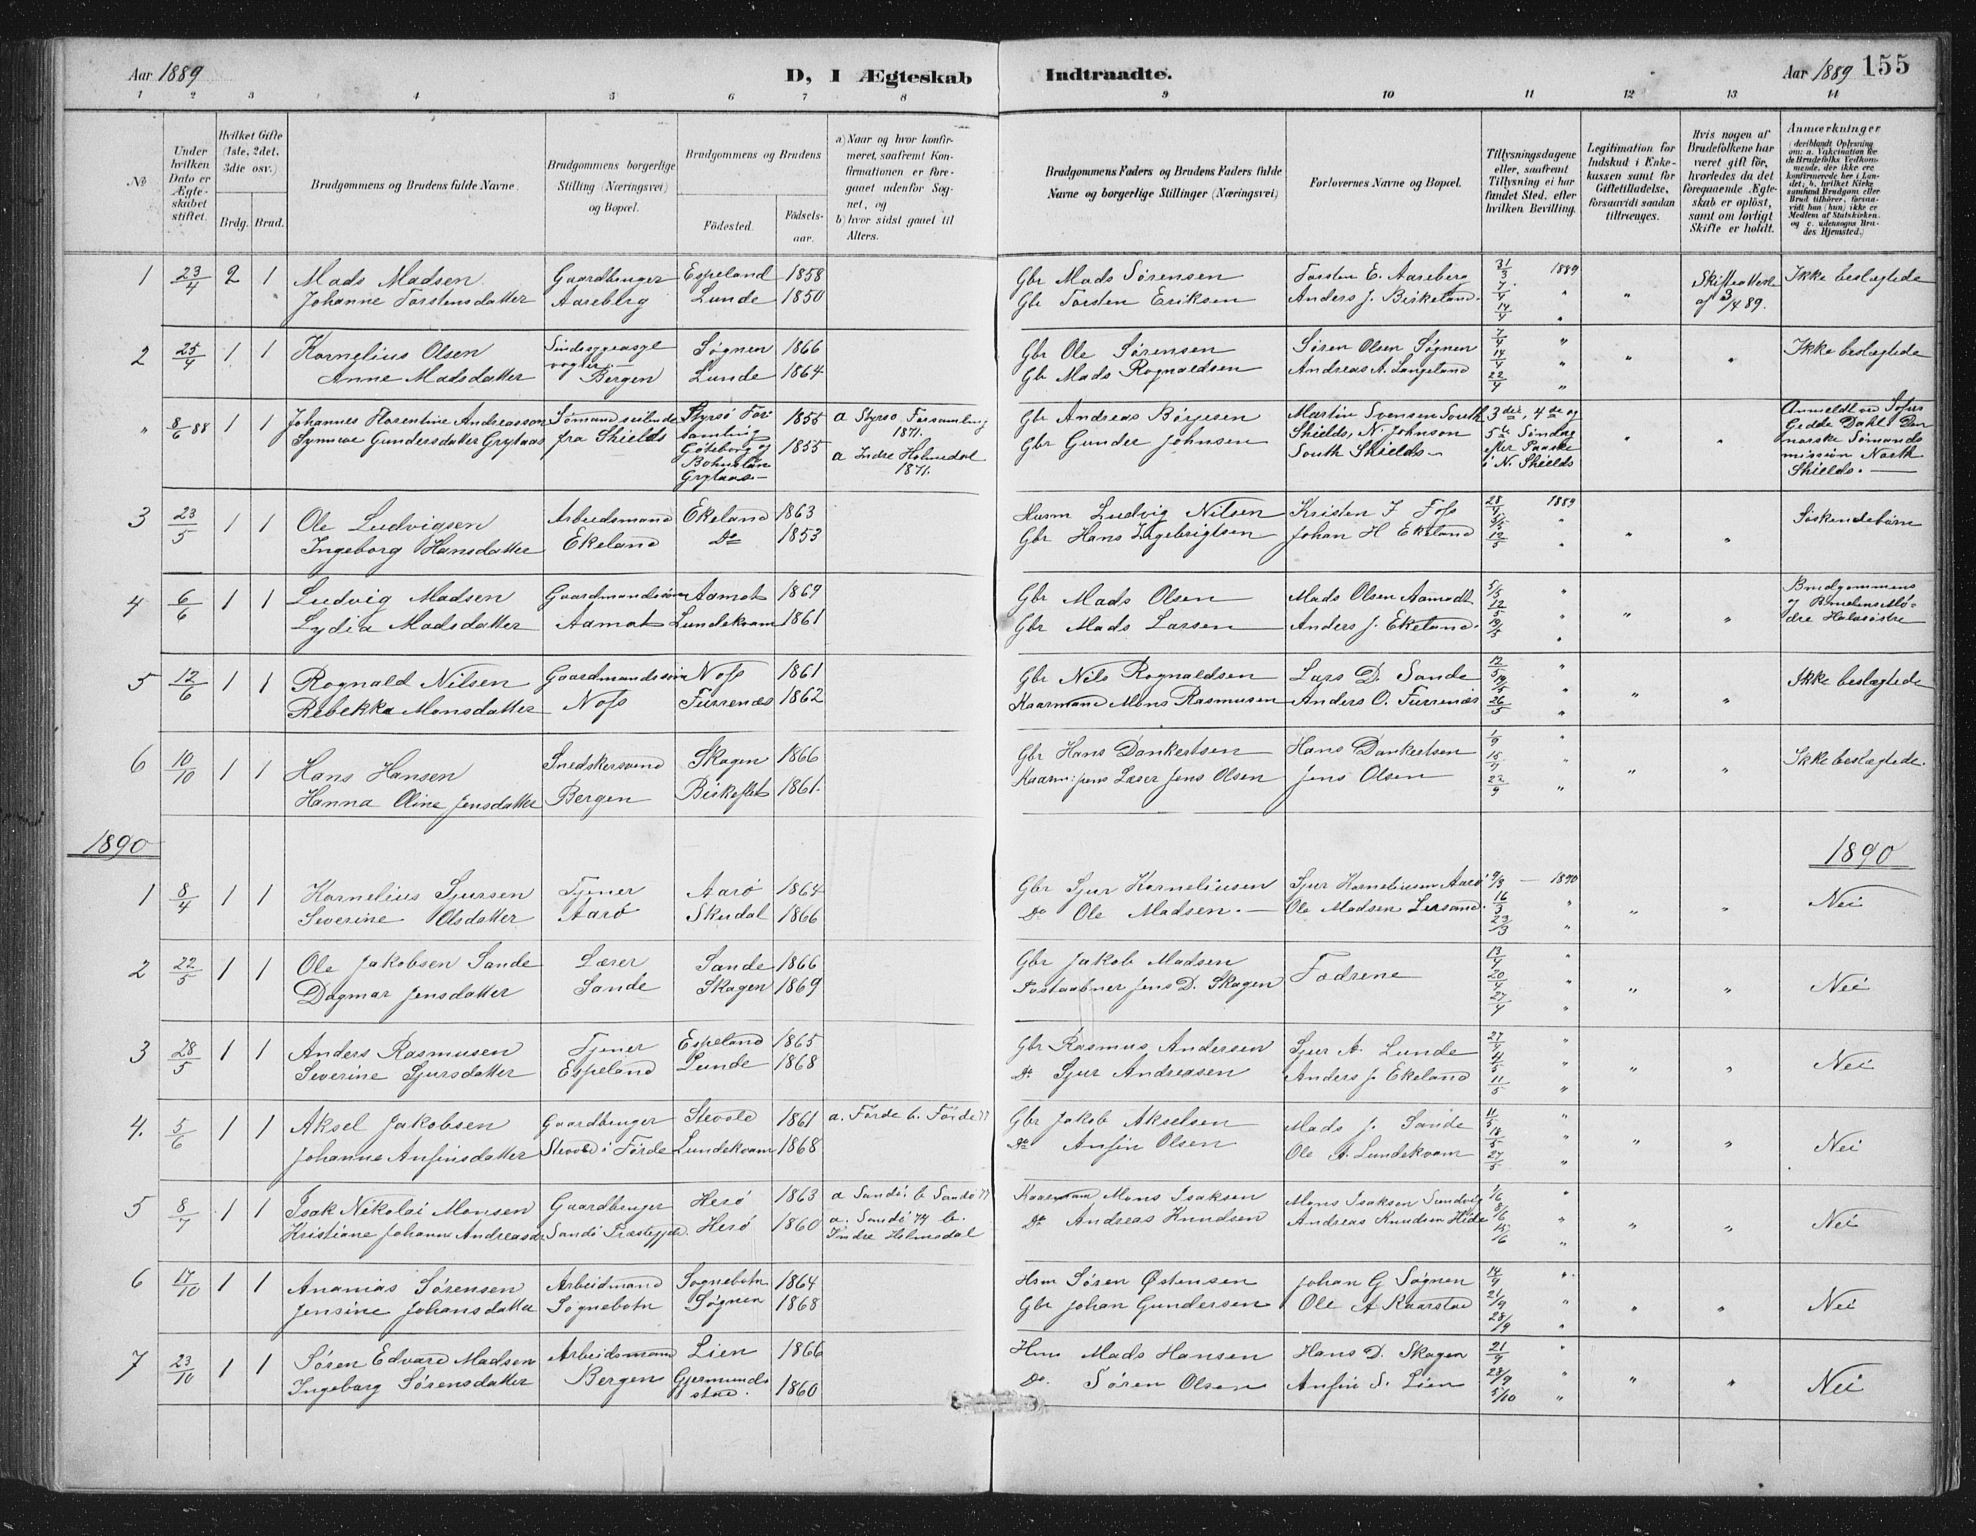 Aar 1889
D, I Ægteskab
Indtraadte.
Aar 1889 155
1 2 3 4 5 6 7 8 9 10 11 12 13 14
No
Under hvilken Dato er Ægteskabet stiftet.
Hvilket Gifte (1ste, 2det, 3die osv.)
Brdg. Brud.
Brudgommens og Brudens fulde Navne.
Brudgommens borgerlige Stilling (Næringsvei) og Bopæl.
Brudgommens og Brudens
Fødested. Fødselsaar.
a) Naar og hvor konfirmeret, saafremt Konfirmationen er foregaaet udenfor Sognet, og
b) hvor sidst gaaet til Alters.
Brudgommens Faders og Brudens Faders fulde Navne og borgerlige Stillinger (Næringsvei)
Forlovernes Navne og Bopæl.
Tillysningsdagene eller, saafremt Tillysning ei har fundet Sted, efter hvilken Bevilling.
Legitimation for Indskud i Enkekassen samt for Giftetilladelse, forsaavidt saadan tiltrænges.
Hvis nogen af Brudefolkene har været gift før, hvorledes da det foregaaende Ægteskab er opløst, samt om lovligt Skifte er holdt.
Anmærkninger
1 23/4 2 1 Mads Madsen Gaardbruger Espeland 1858 Gbr Mads Sørensen Torsten E. Aareberg 31/3 1889 Skifteattest Ikke beslægtede
Johanne Torstensdatter Aareberg Lunde 1850 Gbr Torsten Eriksen Anders J. Birkeland 7/4 " " af 3/4 89.
14/4 "
2 25/4 1 1 Kornelius Olsen Sindssygeasyl Søgnen 1866 Gbr Ole Sørensen Søren Olsen Søgnen 7/4 " Ikke beslægtede
Anne Madsdatter vogter Bergen Lunde 1864 Gbr Mads Rognaldsen Andreas A. Langeland 14/4 " " "
22/4 "
" 8/6 88 1 1 Johannes Florentine Andreasson Sømand seilende Styrsö For 1855 a Styrsö Forsamling Gbr Andreas Börjesen Martin Svensen South 3die, 4de og Anmeldt ved
Synneve Gundersdatter Grytaas fra Shields samling 1871. Gbr Gunder Johnsen Shields, N. Johnson 5te Søndag Gedde Dahl Den
Göteborg og 1855 a Indre Holmedal South Shields efter Paaske norske Sømands
Bohuslän 1871. i N. Shields mission North
Grytaas Shields.
3 23/5 1 1 Ole Ludvigsen Arbeidsmand Ekeland 1863 Husm Ludvig Nilsen Kristen J Foss 28/4 1889 Søskendebørn
Ingeborg Hansdatter Ekeland Do 1853 Gbr Hans Ingebrigtsen Johan H Ekeland 5/5 " " "
12/5 "
4 6/6 1 1 Ludvig Madsen Gaardmandssøn Aamot 1869 Gbr Mads Olsen Mads Olsen Aamodt 5/5 " Brudgommens
Lydia Madsdatter Aamot Lundekvam 1861 Gbr Mads Larsen Anders J. Ekeland 12/5 " " og Brudens Mø-
19/5 " dre Halvsøstre
5 12/6 1 1 Rognald Nilsen Gaardmandssøn Noss 1861 Gbr Nils Rognaldsen Lars D. Sande 12/5 " Ikke beslægtede
Rebekka Monsdatter Noss Furrenæs 1862 Kaarmand Mons Rasmusen Anders O. Furrenæs 19/5 " " "
26/5 "
6 10/10 1 1 Hans Hansen Snedkersvend Skagen 1866 Gbr Hans Dankertsen Hans Dankertsen 1/9 " Ikke beslægtede.
Hanna Oline Jensdatter Bergen Birkeflet 1861. Jens Olsen Jens Olsen 15/9 " " "
22/9 "
1890
1890
1 8/4 1 1 Kornelius Sjursen Tjener Aarö 1864 Gbr Sjur Korneliusen Sjur Korneliusen Aarö 9/3 — 1890
Severine Olsdatter Aarö Skudal 1866 Do Ole Madsen. Ole Madsen 16/3 " " " Nei
23/3 "
2 22/5 1 1 Ole Jakobsen Sande Lærer Sande 1866 Gbr Jakob Madsen Fædrene 13/4 "
Dagmar Jensdatter Sande Skagen 1869 Postaabner Jens D. Skagen 20/4 " " " Nei
27/4 "
3 28/5 1 1 Anders Rasmusen Tjener Espeland 1865 Gbr Rasmus Andersen Sjur A. Lunde 27/4 "
Severine Sjursdatter Espeland Lunde 1868 Do Sjur Andreasen Anders J. Ekeland 4/5 " " " Nei
11/5 "
4. 5/6 1 1 Aksel Jakobsen Gaardbruger Stevold 1861 a. Førde b. Førde Gbr Jakob Akselsen Mads J. Sande 11/5 "
Johanne Anfinsdatter Stevold i Førde Lundekvam 1868 Do Anfin Olsen Ole A. Lundekvam 18/5 " " " Nei
27/5 "
5 8/7 1 1 Isak Nikolai Monsen Gaardbruger Herö 1863 a Sandö b Sandö Kaarmand Mons Isaksen Mons Isaksen Sandvig 1/6 "
Kristiane Johanne Andreasdr Sandö Herö 1860 a. Sandö 74 b. Do Andreas Knudsen Andreas Knudsen Hide 8/6 " " " Nei
Indre Holmedal 15/6 "
6 17/10 1 1 Ananias Sørensen Arbeidmand Sognebotn 1864 Hsm Søren Østensen Johan G Søgnen 14/9 "
Jensine Johansdatter Søgnebotn Søgnen 1868 Gbr Johan Gundersen Ole A Kaarstad 21/9 " " " Nei
28/9 "
7 23/10 1 1 Søren Edvard Madsen Arbeidsmand Lien 1866 Hsm Mads Hansen Hans D. Skagen 21/9 "
Ingeborg Sørensdatter Bergen Gjermunds 1860 Do. Søren Olsen Anfin S. Lien 28/9 " " " Nei
stad. 5/10 "